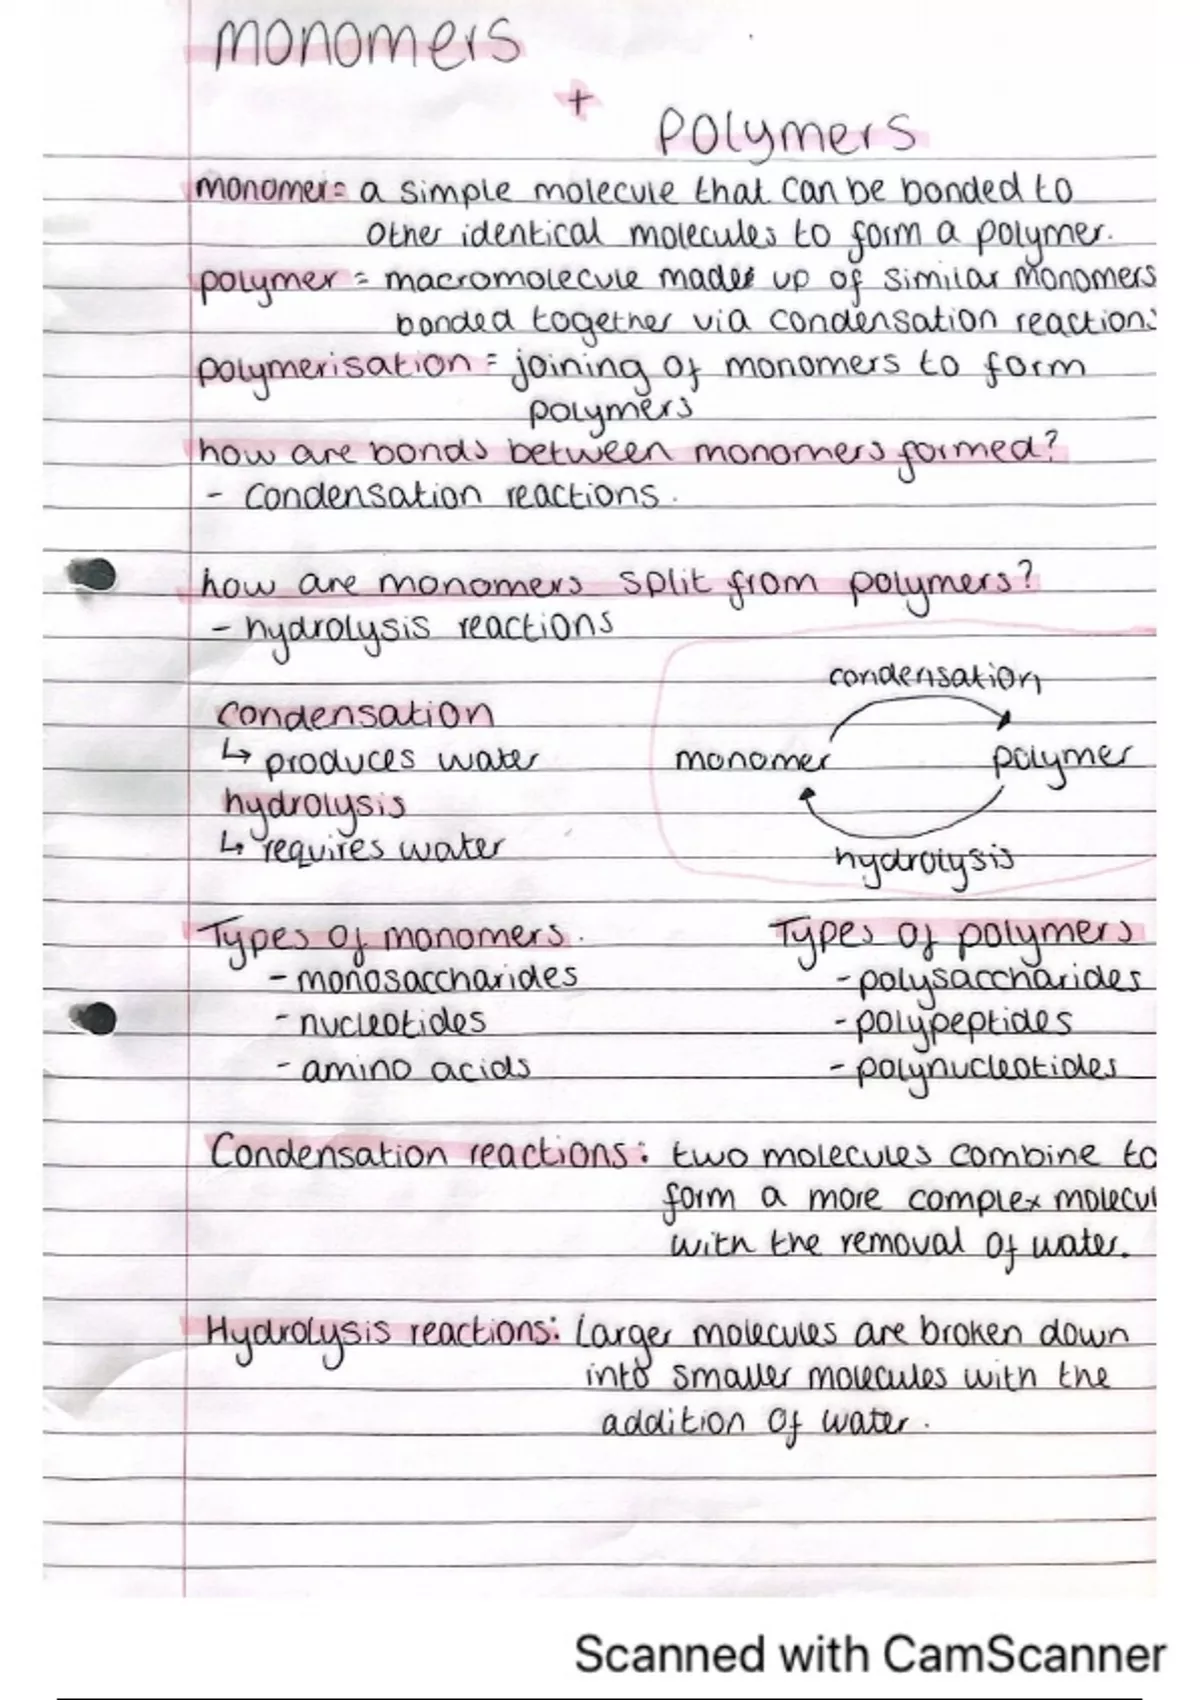 monomers
+
Polymers
monomer = a simple molecule that can be bonded to
other identical molecules to form a polymer.
polymer = macromolecule made up of similar monomers
bonded together via condensation reactions
polymerisation = joining of monomers to form
polymers
how are bonds between monomers formed?
- condensation reactions.
how are monomers split from polymers?
- hydrolysis reactions
condensation
↳ produces water
hydrolysis
↳ requires water
condensation
monomer polymer
hydrolysis
Types of monomers.
- monosaccharides
- nucleotides
- amino acids
Types of polymers
- polysaccharides
- polypeptides
- polynucleotides
Condensation reactions: two molecules combine to
form a more complex molecul
with the removal of water.
Hydrolysis reactions: Larger molecules are broken down
into smaller molecules with the
addition of water.
Scanned with CamScanner